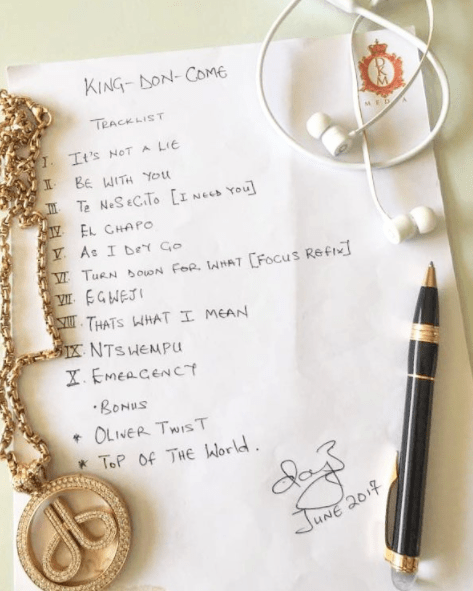 DKM
MEDIA
KING-DON-COME
TRACKLIST
I. It's NOT A LIE
II. BE WITH YOU
III. Te NeSeCiTo [I NEED YOU]
IV. EL CHAPO
V. AS I DEY GO
VI. TURN DOWN FOR WHAT [FOCUS REFIX]
VII. EGWEJI
VIII. THATS WHAT I MEAN
IX. NTSWEMPU
X. EMERGENCY
• BONUS
* OLIVER TWIST
* ToP OF THE World.
JUNE 2017